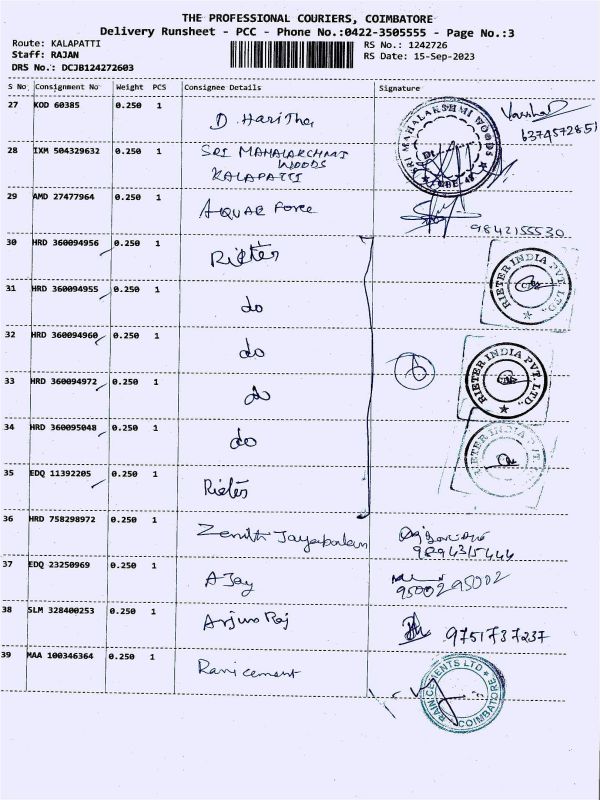 THE PROFESSIONAL COURIERS, COIMBATORE
Delivery Runsheet - PCC - Phone No.:0422-3505555 - Page No.:3
Route: KALAPATTI RS No.: 1242726
Staff: RAJAN RS Date: 15-Sep-2023
DRS No.: DCJB124272603
S No Consignment No Weight PCS Consignee Details Signature
27 KOD 60385 0.250 1 D. Haritha
6374572851
28 IXM 504329632 0.250 1 SRI MAHALAKSHMI
WOODS
KALAPATTI
SRI MAHALAKSHMI WOODS
29 AMD 27477964 0.250 1 AQUAR Force
9842155530
30 HRD 360094956 0.250 1 Rieter
RIETER INDIA PVT. LTD.
31 HRD 360094955 0.250 1 do
32 HRD 360094960 0.250 1 do
RIETER INDIA PVT. LTD.
33 HRD 360094972 0.250 1 do 6
34 HRD 360095048 0.250 1 do
RIETER INDIA PVT. LTD.
35 EDQ 11392205 0.250 1 Rieter
36 HRD 758298972 0.250 1 Zenith Jayapalan
9894315444
37 EDQ 23250969 0.250 1 AJay
9500295002
38 SLM 328400253 0.250 1 Arjun Raj
9751737237
39 MAA 100346364 0.250 1 Rani cement
COIMBATORE